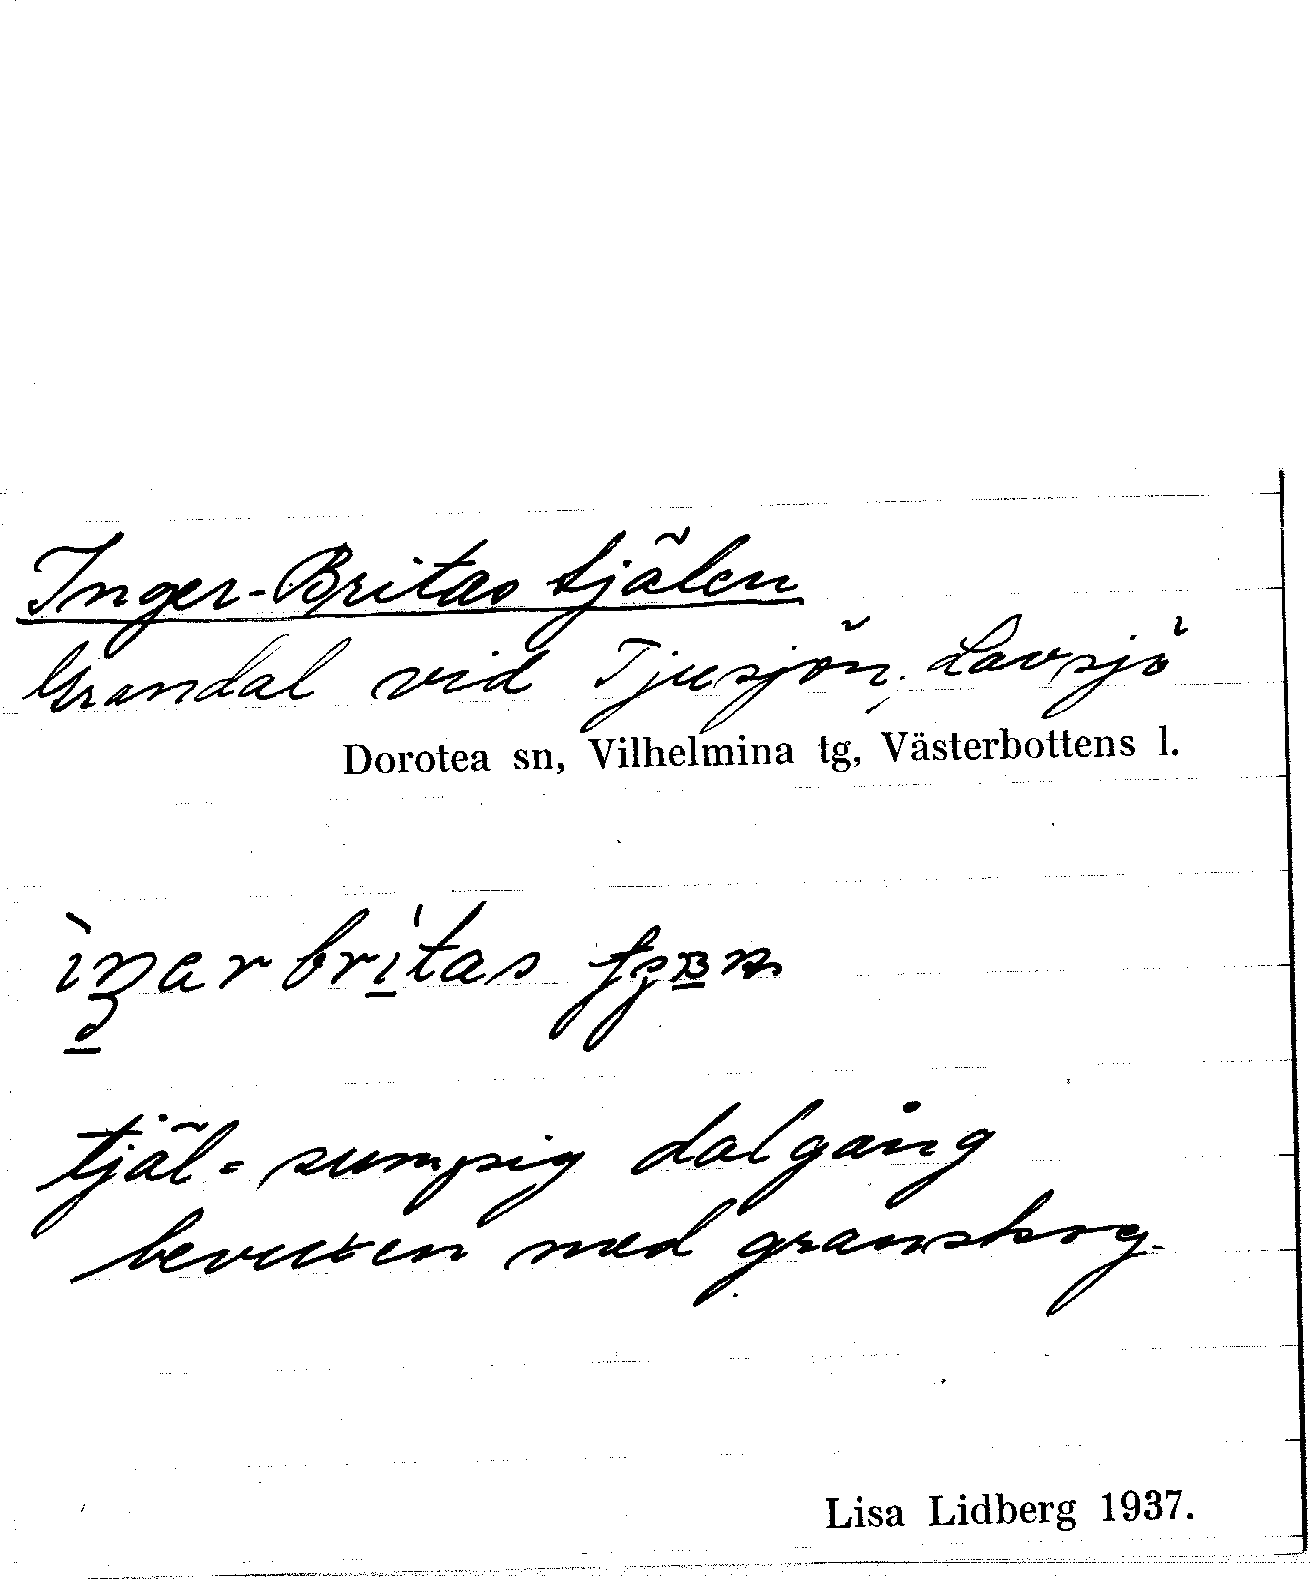 Inger-Britas tjälen
Grandal vid Tjusjön, Lavsjö
Dorotea sn, Vilhelmina tg, Västerbottens l.
tjäl = sumpig dalgång
bevuxen med granskog.
Lisa Lidberg 1937.